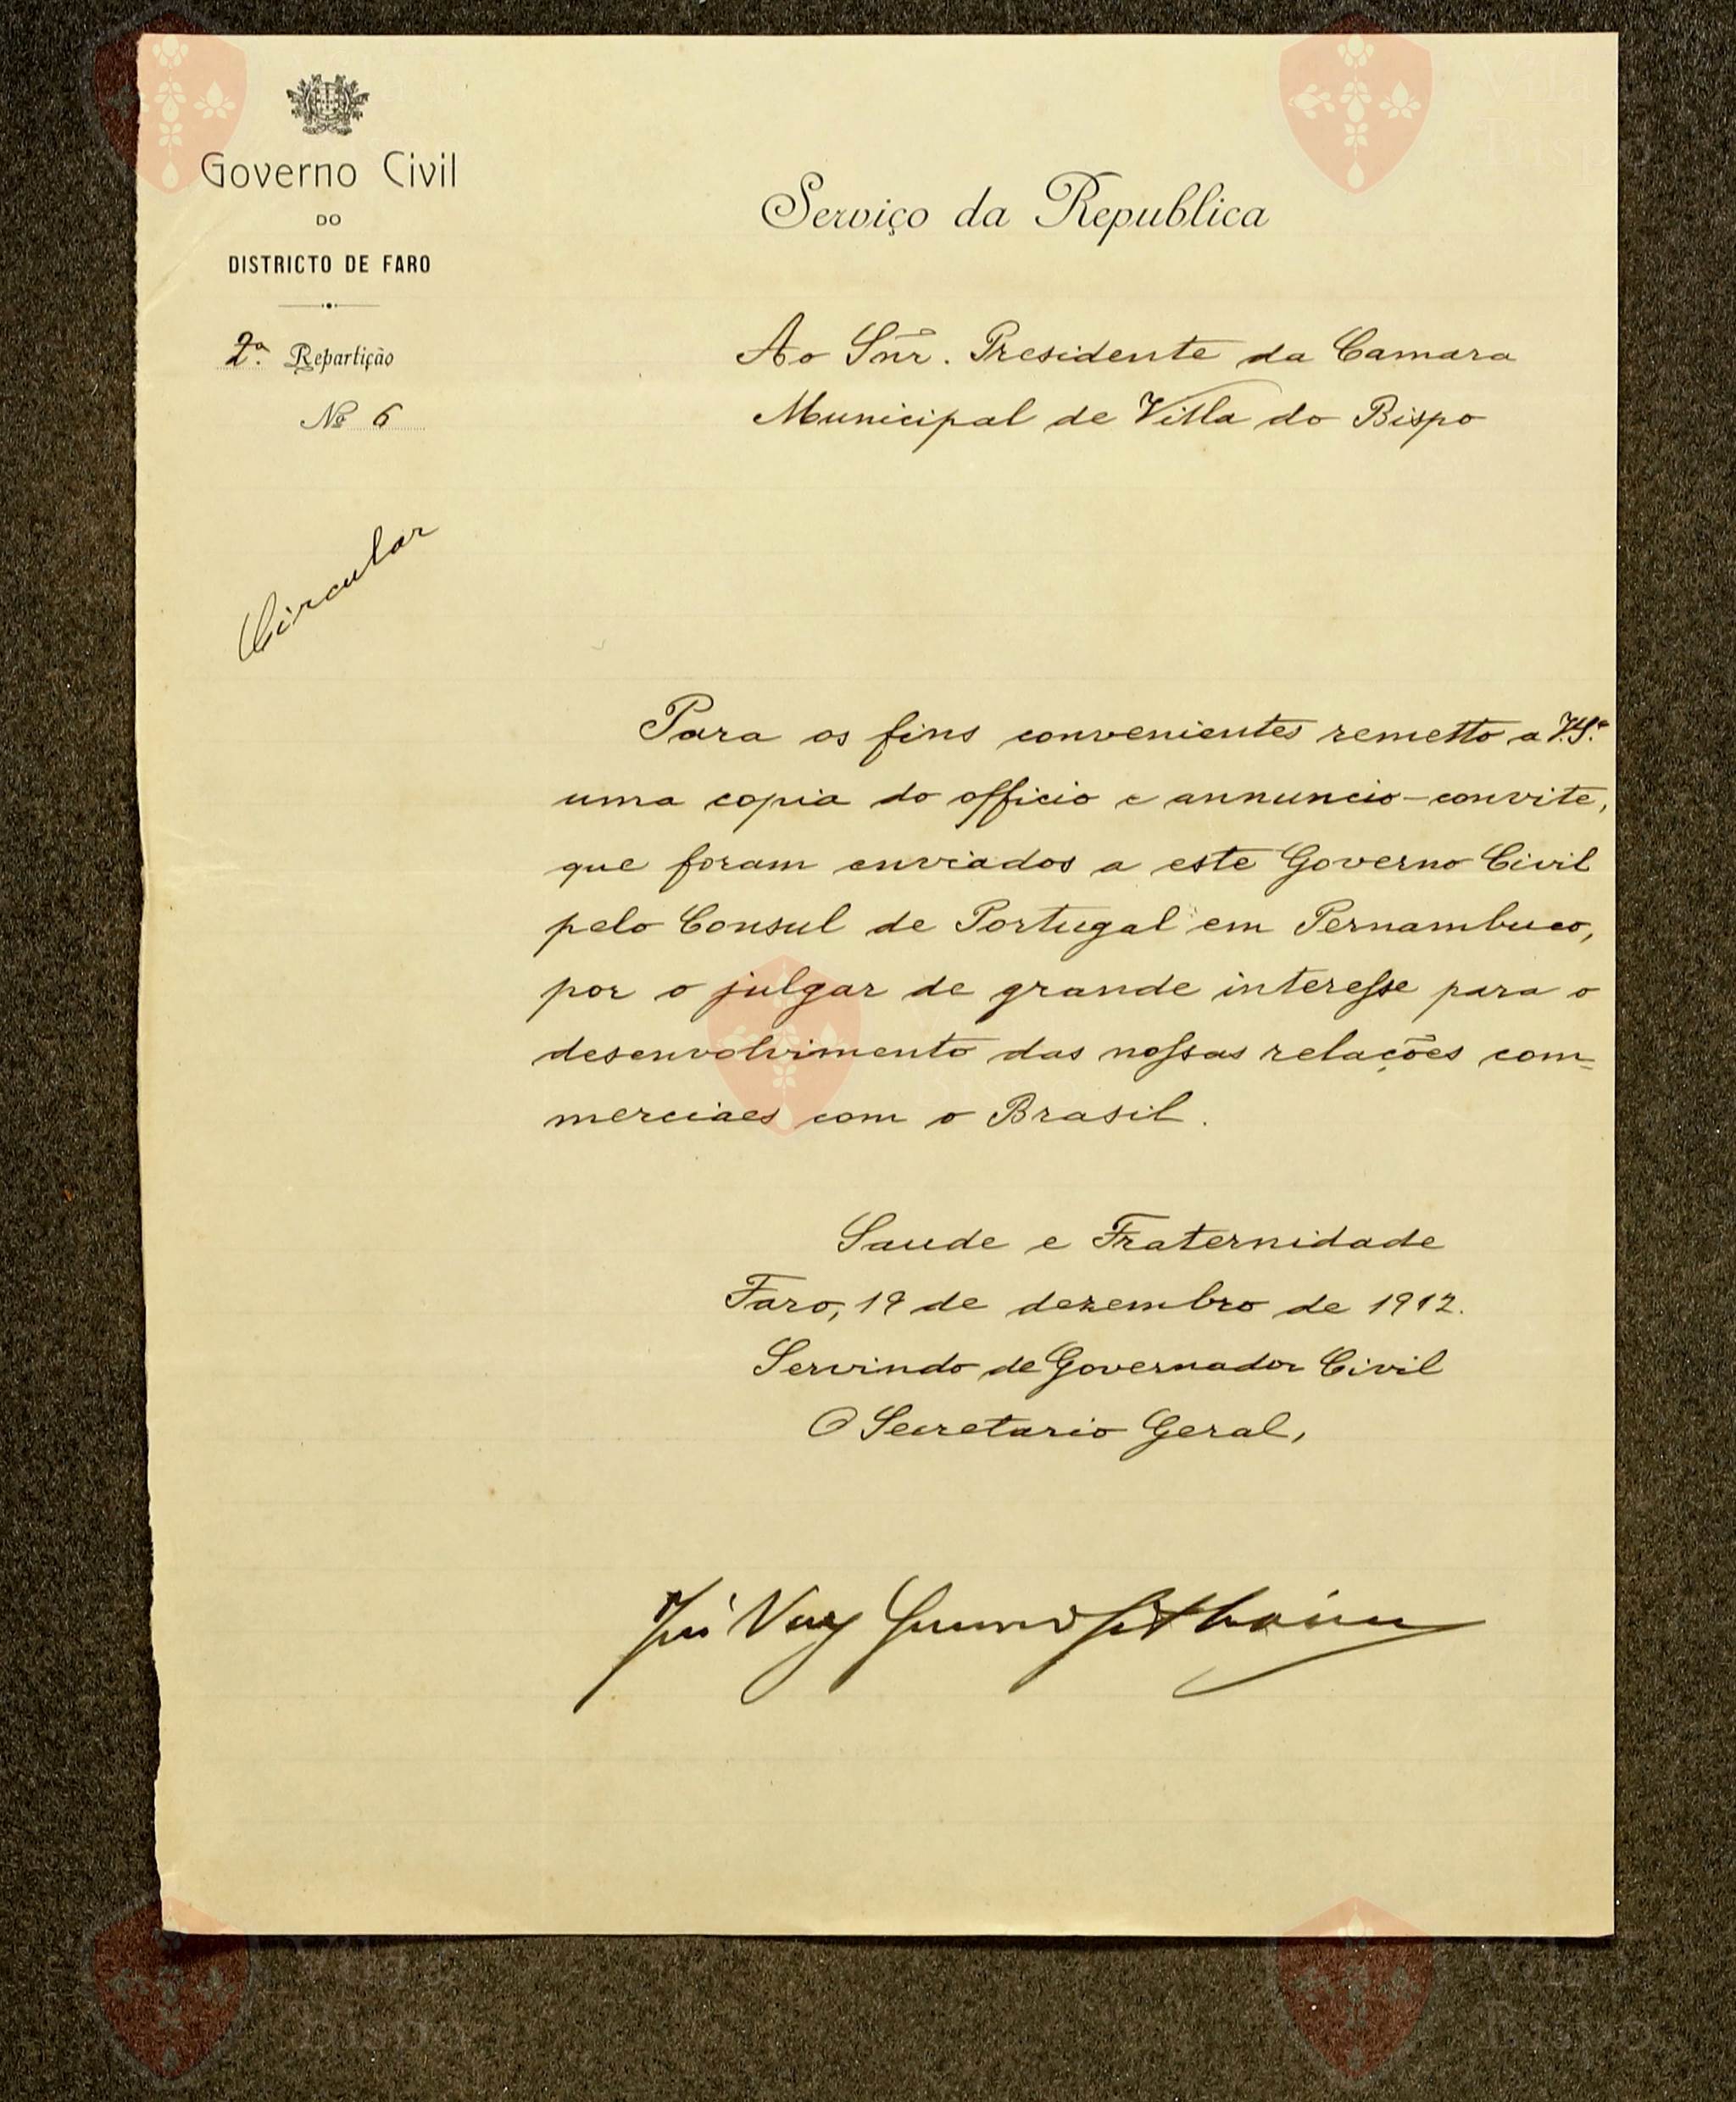 Governo Civil
DO
DISTRICTO DE FARO
2ª Repartição
Nº 6
Circular
Serviço da Republica
Ao Snr. Presidente da Camara
Municipal de Villa do Bispo
Para os fins convenientes remetto a V.Sª
uma copia do officio e annuncio-convite,
que foram enviados a este Governo Civil
pelo Consul de Portugal em Pernambuco,
por o julgar de grande interesse para o
desenvolvimento das nossas relações com=
merciaes com o Brasil.
Saude e Fraternidade
Faro, 19 de dezembro de 1912.
Servindo de Governador Civil
O Secretario Geral,
José Vaz